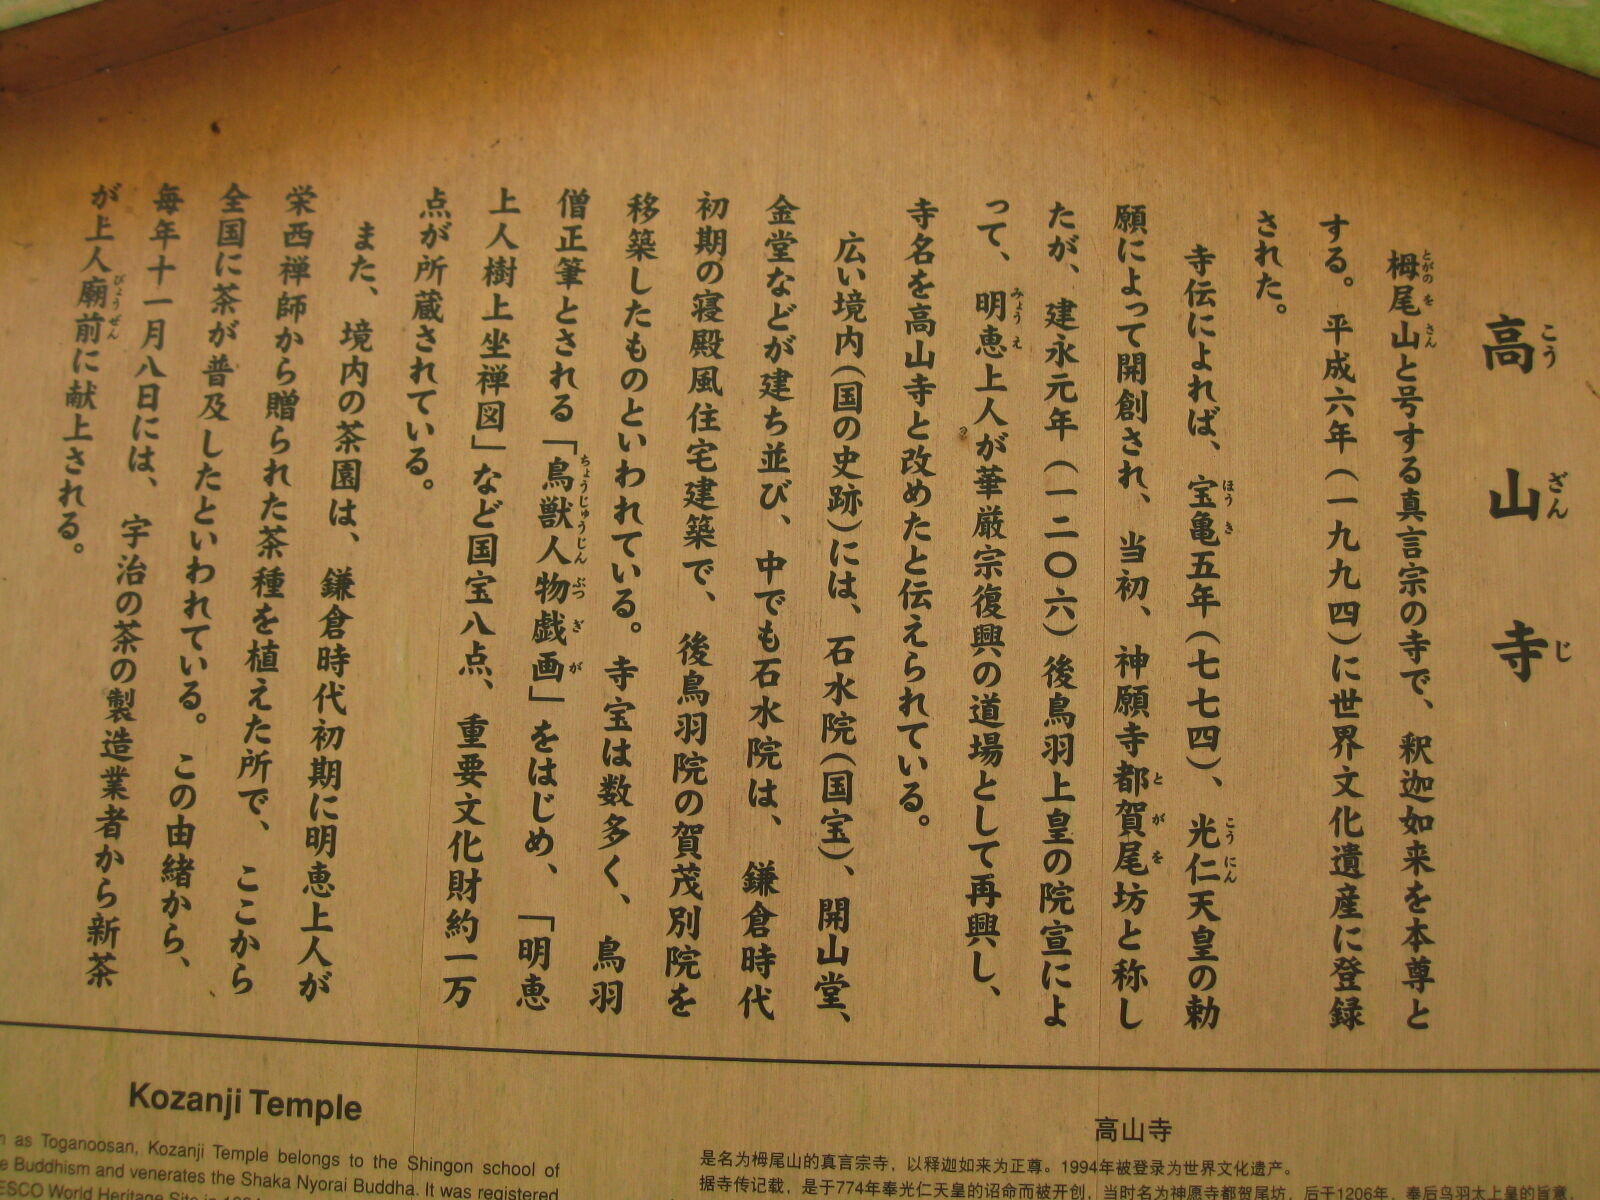 高山寺
栂尾山と号する真言宗の寺で、釈迦如来を本尊と
する。平成六年(一九九四)に世界文化遺産に登録
された。
寺伝によれば、宝亀五年(七七四)、光仁天皇の勅
願によって開創され、当初、神願寺都賀尾坊と称し
たが、建永元年(一二〇六)後鳥羽上皇の院宣によ
って、明恵上人が華厳宗復興の道場として再興し、
寺名を高山寺と改めたと伝えられている。
広い境内(国の史跡)には、石水院(国宝)、開山堂、
金堂などが建ち並び、中でも石水院は、鎌倉時代
初期の寝殿風住宅建築で、後鳥羽院の賀茂別院を
移築したものといわれている。寺宝は数多く、鳥羽
僧正筆とされる「鳥獣人物戯画」をはじめ、「明恵
上人樹上坐禅図」など国宝八点、重要文化財約一万
点が所蔵されている。
また、境内の茶園は、鎌倉時代初期に明恵上人が
栄西禅師から贈られた茶種を植えた所で、ここから
全国に茶が普及したといわれている。この由緒から、
毎年十一月八日には、宇治の茶の製造業者から新茶
が上人廟前に献上される。
Kozanji Temple
as Toganoosan, Kozanji Temple belongs to the Shingon school of
Buddhism and venerates the Shaka Nyorai Buddha. It was registered
World Heritage Site in
高山寺
是名为栂尾山的真言宗寺，以释迦如来为正尊。1994年被登录为世界文化遗产。
据寺传记载，是于774年奉光仁天皇的诏命而被开创，当时名为神愿寺都贺尾坊，后于1206年，奉后鸟羽太上皇的旨意